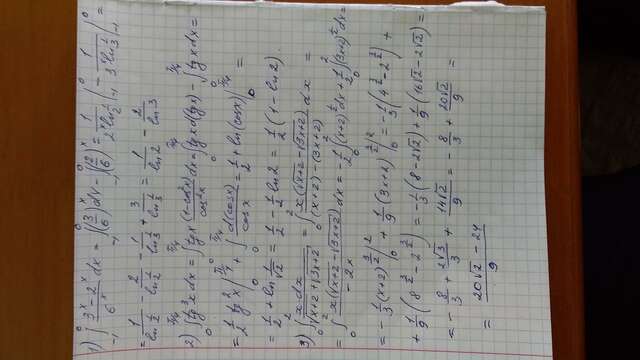 1) ∫₋₁⁰ (3ˣ - 2ˣ)/6ˣ dx = ∫₋₁⁰ (3/6)ˣ dx - ∫₋₁⁰ (2/6)ˣ = 1/(2ˣ ln 1/2) |₋₁⁰ - 1/(3ˣ ln 1/3) |₋₁⁰ =
= 1/(ln 1/2) - 2/(ln 1/2) - 1/(ln 1/3) + 3/(ln 1/3) = 1/ln2 - 2/ln3
2) ∫₀^(π/4) tg³x dx = ∫₀^(π/4) tgx (1-cos²x)/cos²x dx = ∫₀^(π/4) tgx d(tgx) - ∫₀^(π/4) tgx dx =
= 1/2 tg²x |₀^(π/4) + ∫₀^(π/4) d(cosx)/cosx = 1/2 + ln(cosx) |₀^(π/4) =
= 1/2 + ln 1/√2 = 1/2 - 1/2 ln2 = 1/2 (1 - ln2)
3) ∫₀² x dx/(√(x+2) + √(3x+2)) = ∫₀² x(√(x+2) - √(3x+2))/((x+2) - (3x+2)) dx =
= ∫₀² x(√(x+2) - √(3x+2))/(-2x) dx = -1/2 ∫₀² (x+2)^(1/2) dx + 1/2 ∫₀² (3x+2)^(1/2) dx =
= -1/3 (x+2)^(3/2) |₀² + 1/9 (3x+2)^(3/2) |₀² = -1/3 (4^(3/2) - 2^(3/2)) +
+ 1/9 (8^(3/2) - 2^(3/2)) = -1/3 (8 - 2√2) + 1/9 (16√2 - 2√2) =
= -8/3 + 2√2/3 + 14√2/9 = -8/3 + 20√2/9 =
= (20√2 - 24)/9